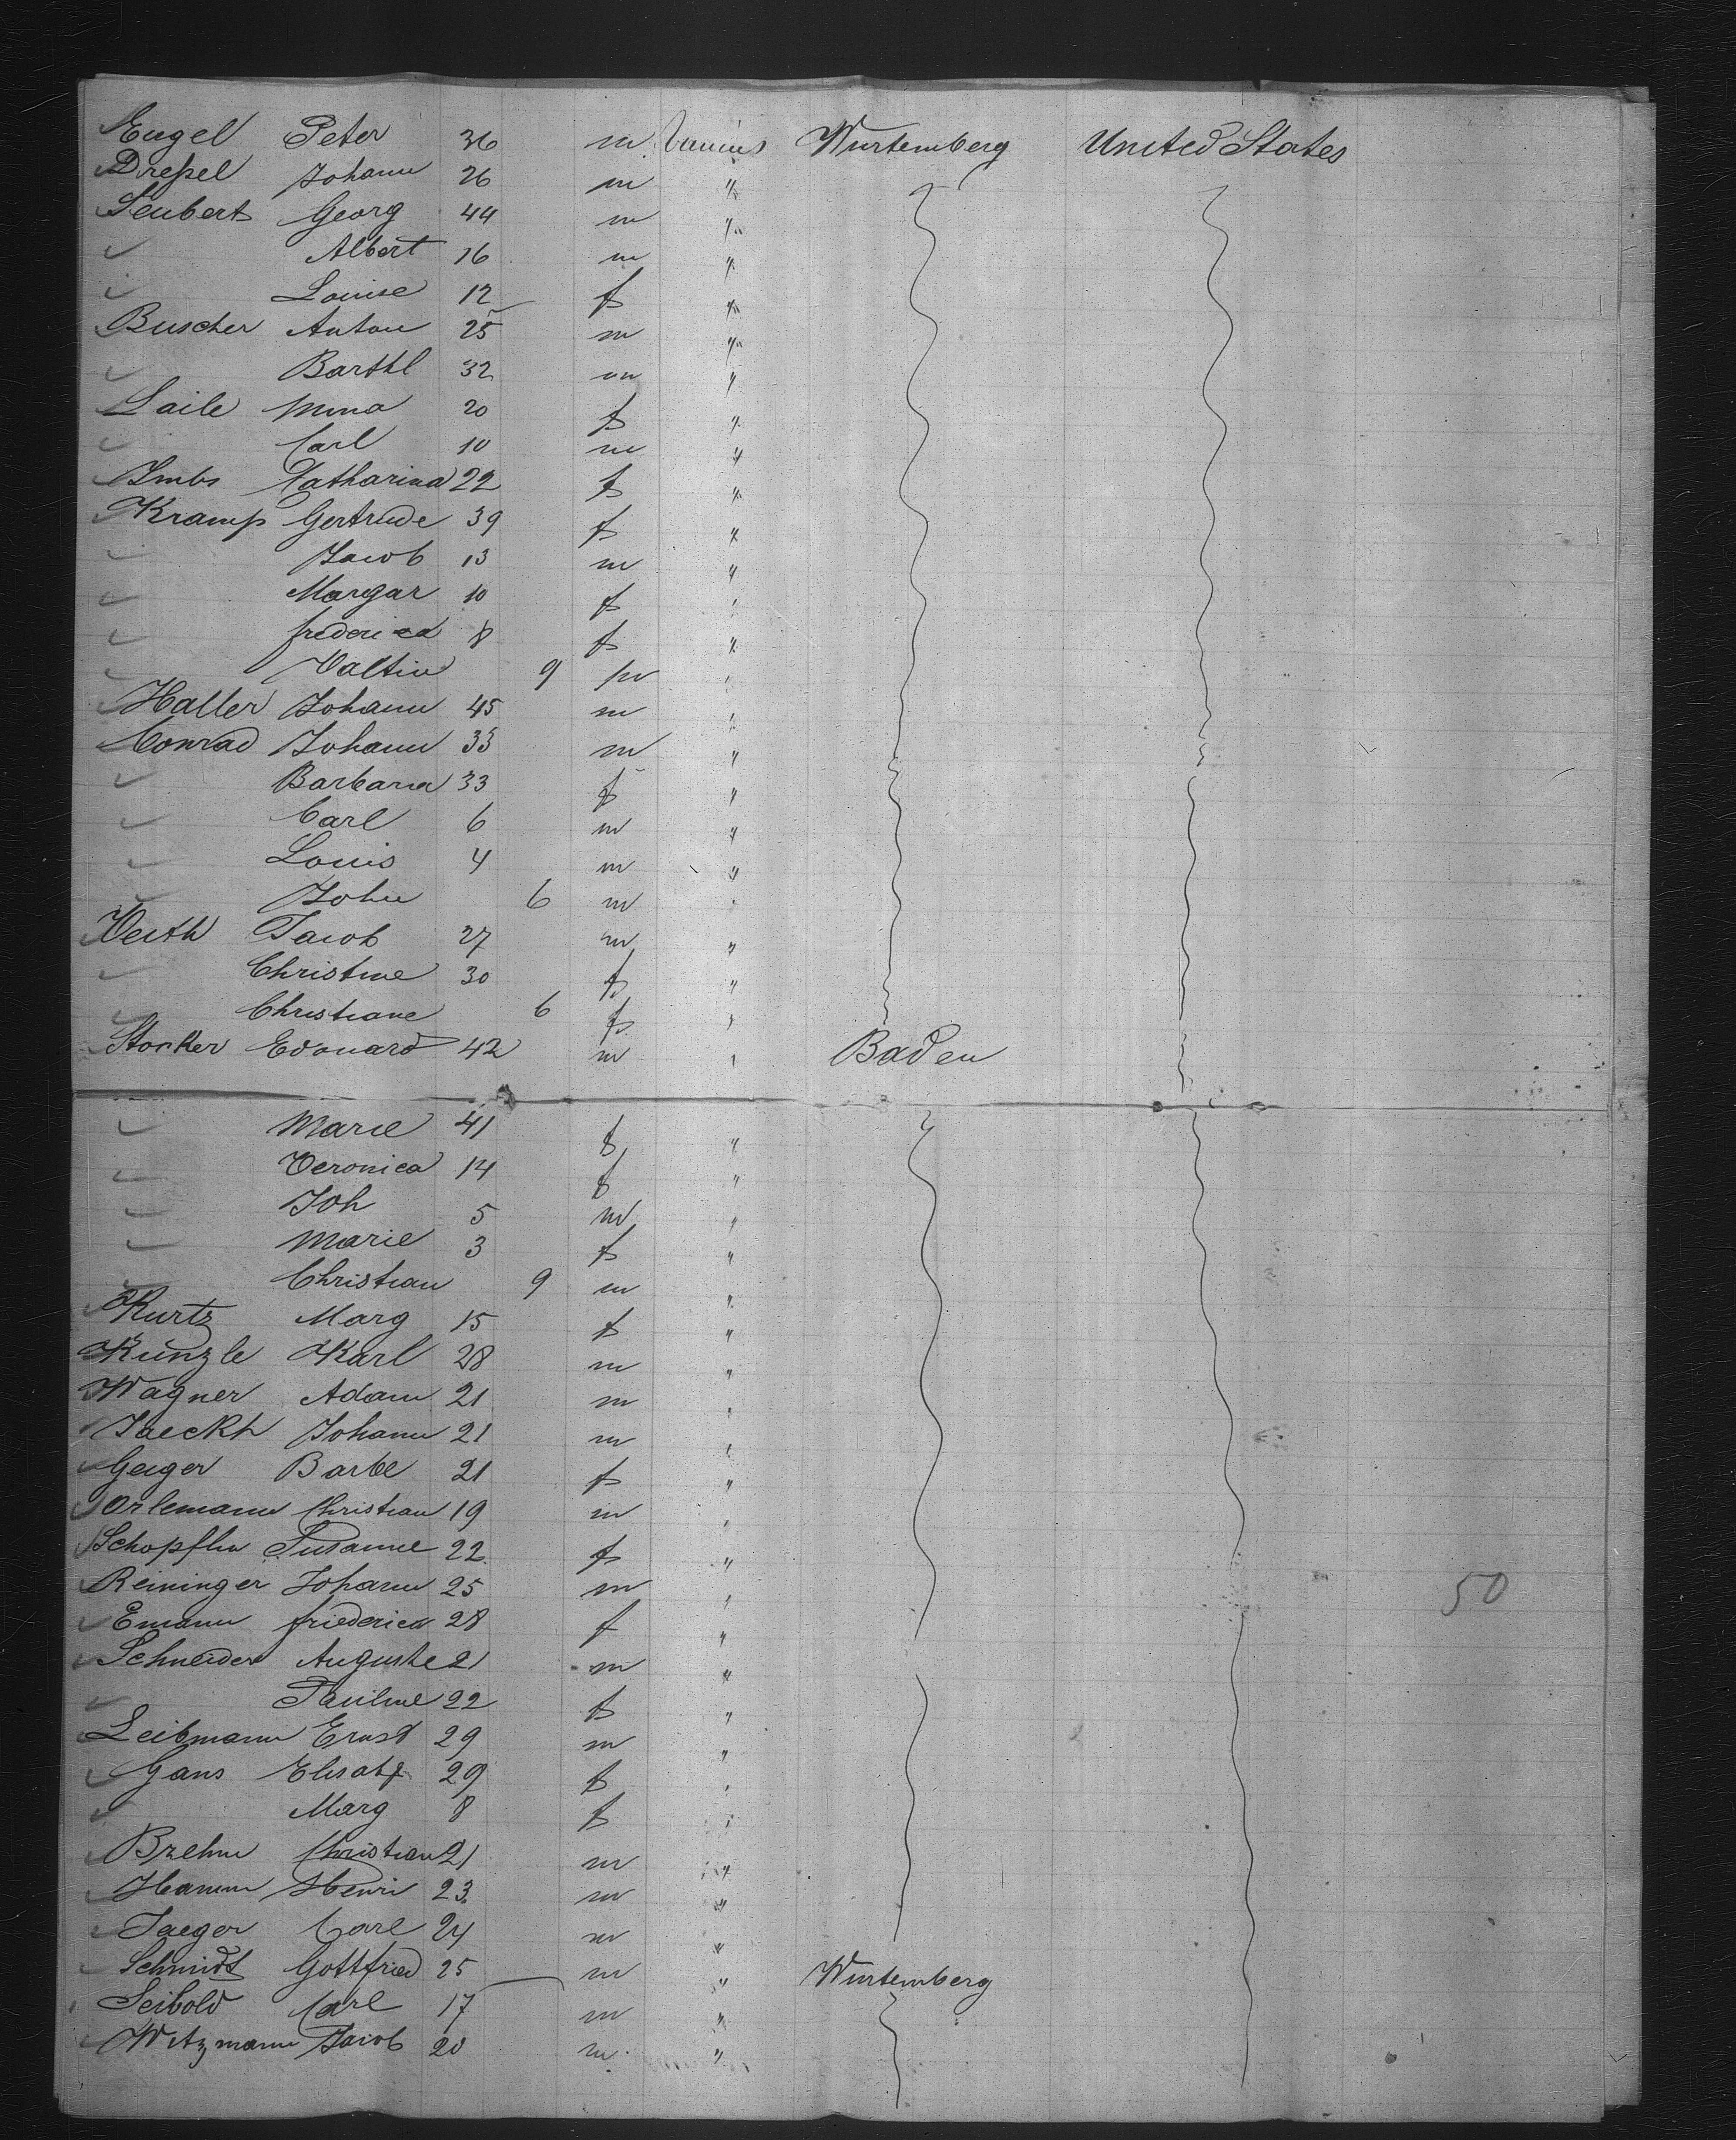 Engel Peter 36 m various Wurtemberg United States
Dressel Johann 26 m "
Seubert Georg 44 m "
Albert 16 m "
Louise 12 f "
Buscher Anton 25 m "
Barthl 32 m "
Laile Mina 20 f "
Carl 10 m "
Imbs Katharina 22 f "
Kramp Gertrude 39 f "
Jacob 13 m "
Margar 10 f "
frederica 8 f "
Valtin 9 m "
Haller Johann 45 m "
Conrad Johann 33 m "
Barbara 33 f "
Carl 6 m "
Louis 4 m "
John 6 m "
Veith Jacob 27 m "
Christine 30 f "
Christiane 6 f "
Storker Edouard 42 m " Baden
Marie 41 f "
Veronica 14 f "
Joh 5 m "
Marie 3 f "
Christian 9 m "
Kurtz Marg 15 f "
Künzle Karl 28 m "
Wagner Adam 21 m "
Jaeckh Johann 21 m "
Geiger Barbe 21 f "
Orlemann Christian 19 m "
Schopflin Susanne 22 f "
Reininger Johann 25 m " 50
Emann friederica 28 f "
Schneider Auguste 21 m "
Pauline 22 f "
Leibmann Ernst 29 m "
Gans Elisabh 29 f "
Marg 8 f "
Brehm Christian 21 m "
Hamm Henri 23 m "
Jaeger Carl 24 m "
Schmidt Gottfried 25 m " Wurtemberg
Seibold Carl 17 m "
Witzmann Jacob 20 m "